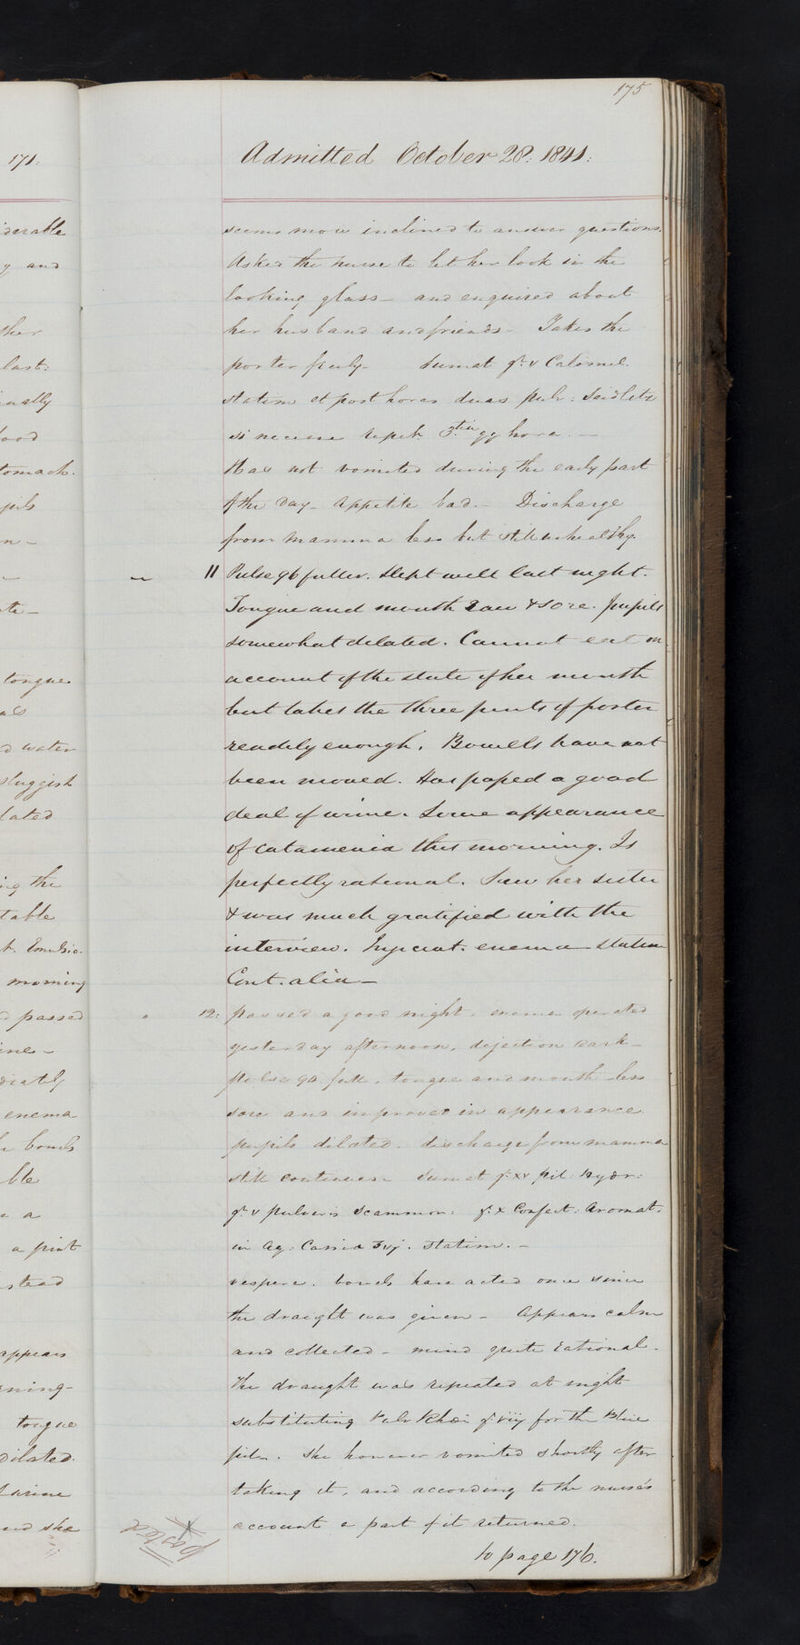 175
171.
Admitted October 28. 1841.
seems more inclined to answer questions.
Asked the nurse to let her look in the
looking glass - and enquired about
her husband and friends - Takes the
porter freely - Sumat gr. v Calomel
statim et post horas duas pulv: Seidlitz
si necesse repet 3tia qq hora. -
Has not vomited during the early part
of the day - Appetite bad. - Discharge
from mamma less but still unhealthy.
" 11 Pulse 96 fuller. Slept well last night.
Tongue and mouth raw & sore. pupils
somewhat dilated. Cannot eat on
account of the state of her mouth
but takes the three pints of porter
readily enough. Bowells have not
been moved. Has passed a good
deal of urine. Some appearance
of catamenia this morning. Is
perfectly rational. Saw her sister
& was much gratified with the
interview. Injiciat. enema statim
Cont. alia -
" 12: passed a good night. enema operated
yesterday afternoon, dejection dark -
pulse 90 full, tongue and mouth less
sore and improved in appearance
pupils dilated - discharge from mamma
still continues - Sumat gr. xv pil: Hydr:
gr. v pulveris Scammon: gr. x Confect: Aromat.
in Aq: Cassia ʒvj. statim. -
vespere. bowels have acted once since
the draught was given - Appears calm
and collected - mind quite rational -
The draught was repeated at night
substituting Pulv Rhei gr. viij for the Blue
pill. She however vomited shortly after
taking it, and according to the nurse's
account a part of it returned.
to page 176.
iderable
y and
ther
last:
ually
ood
tomach.
pils
n -
te -
tongue
d water
sluggish
lated
ing the
table
morning
d passed
ine -
diately
enema
bowels
ble
a
a pint
stead
appears
rning -
tongue
dilated.
urine
and she